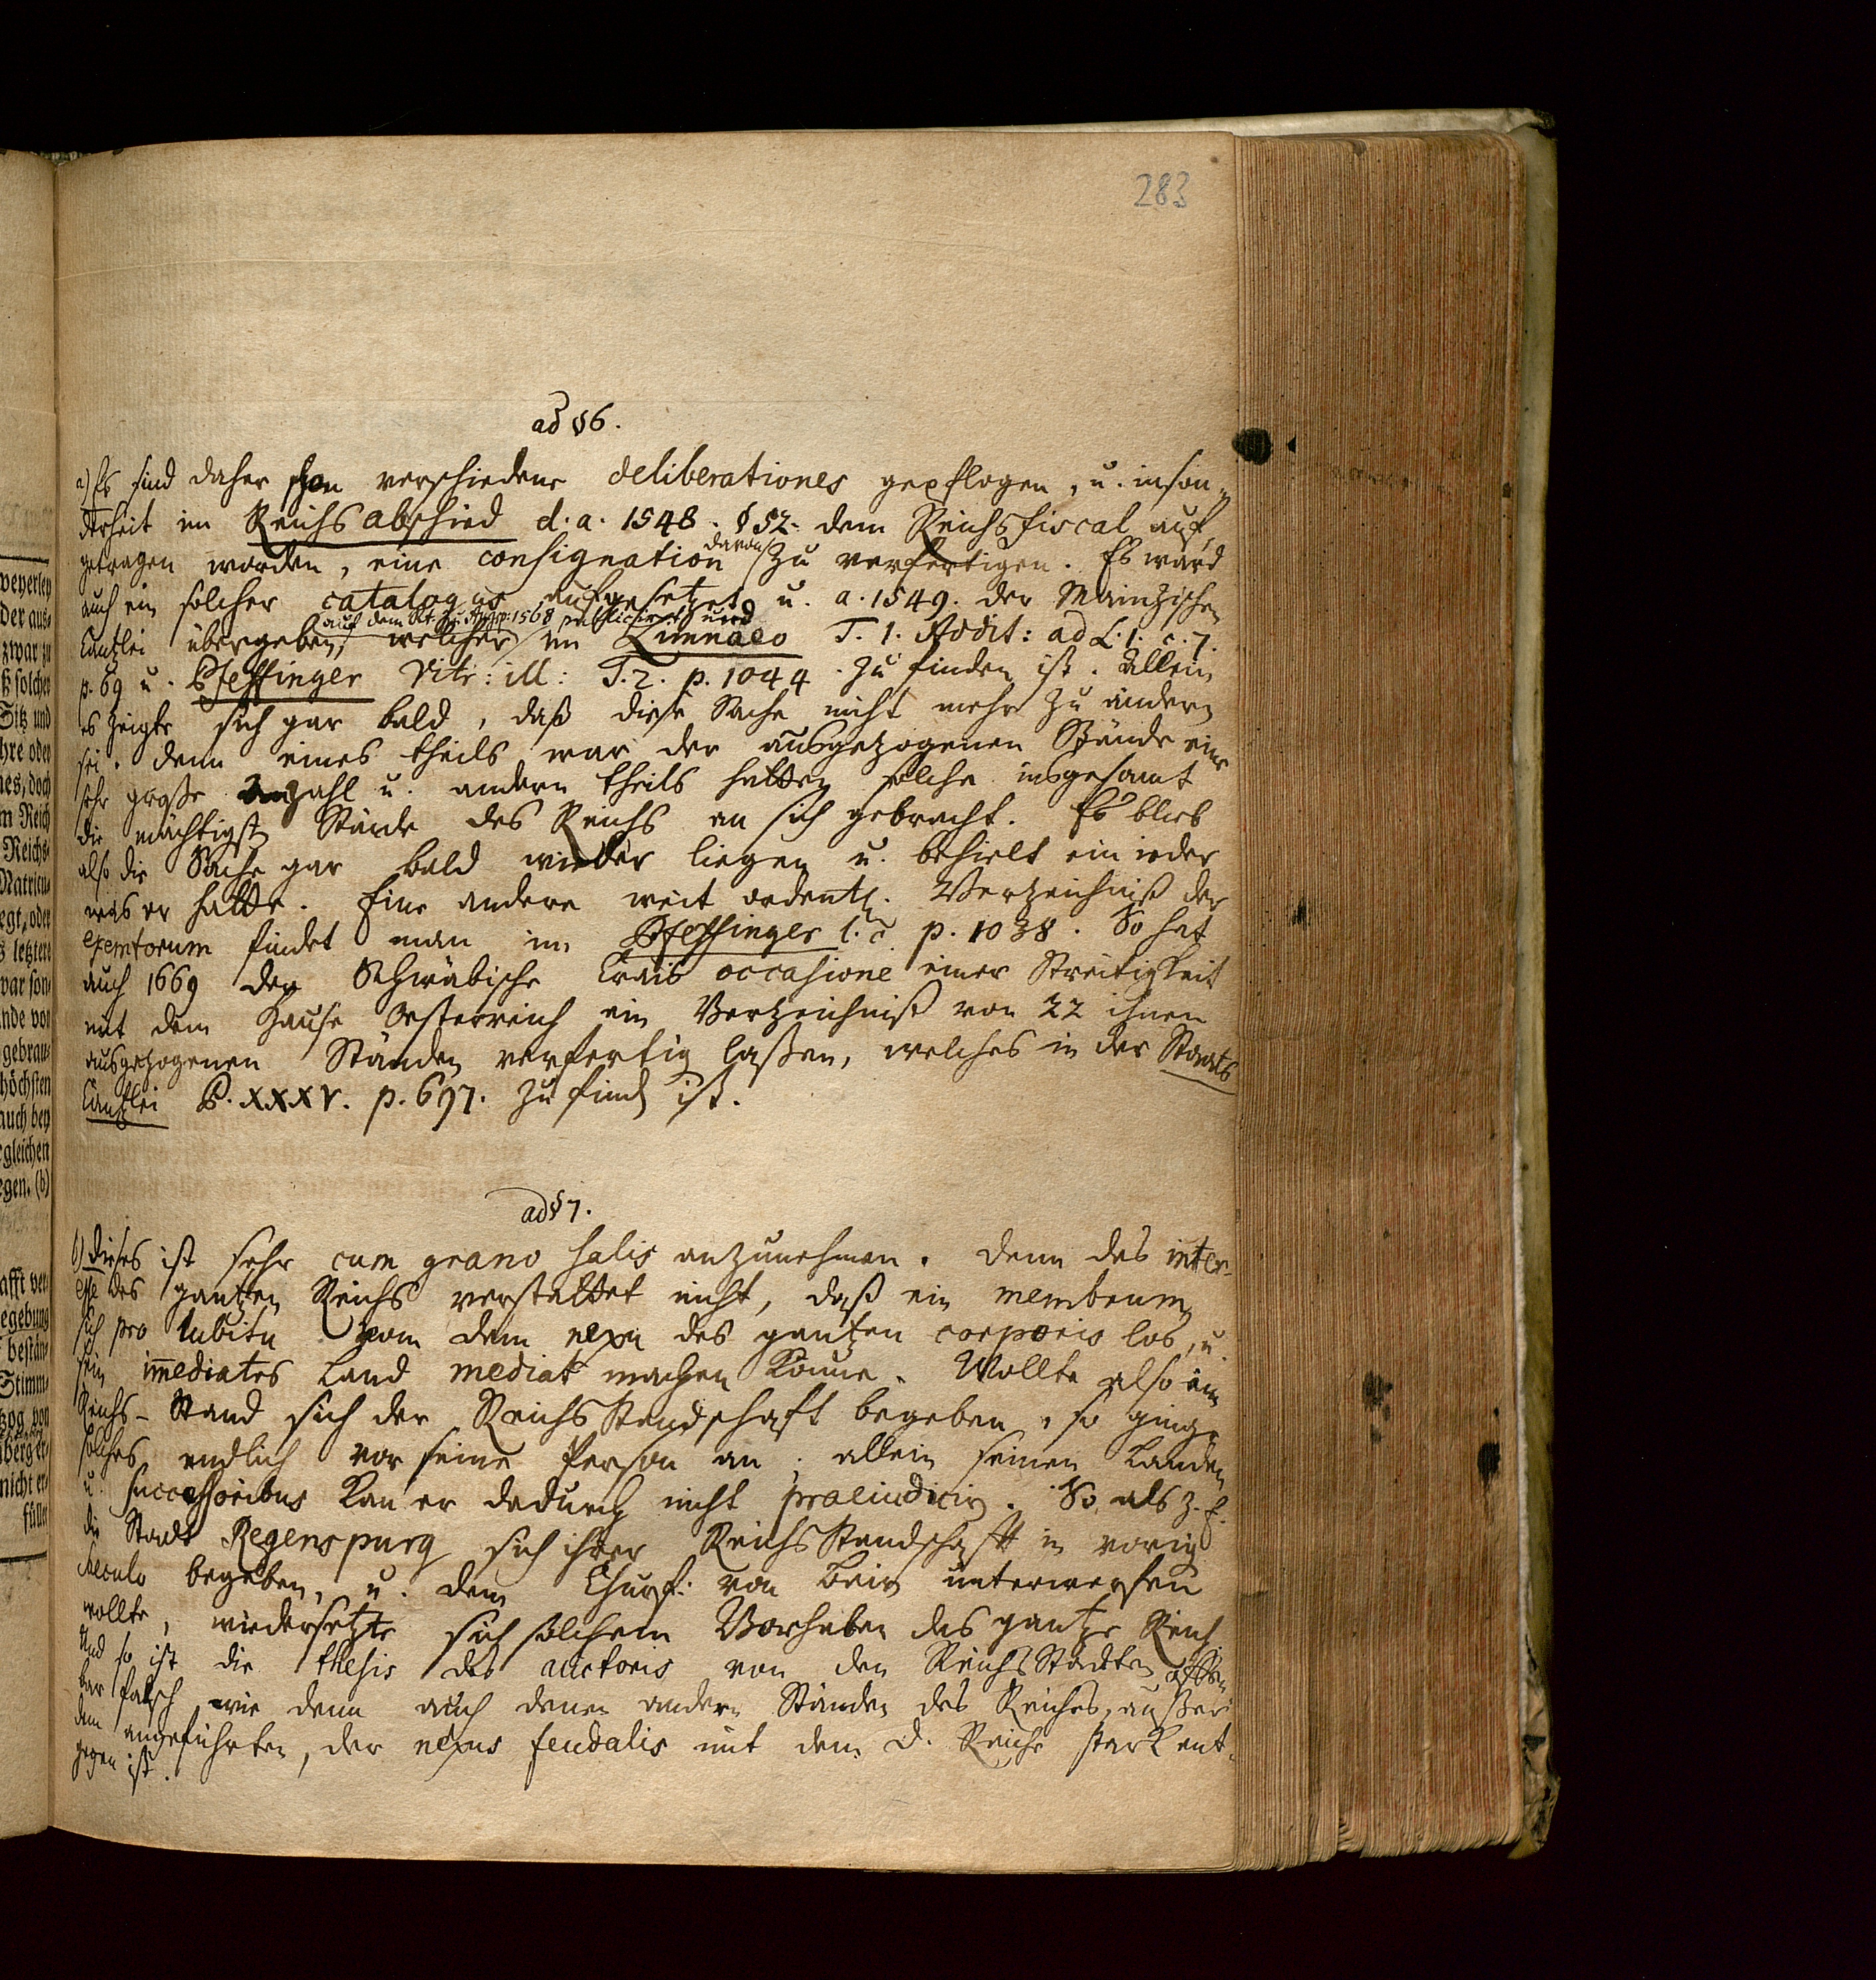 283
ad § 6.
a) Es sind daher schon verschiedene deliberationes gepflogen, u. inson-
derheit im Reichsabschied d. a. 1548. § 52. dem Reichsfiscal auf-
getragen worden, eine consignation davon zu verfertigen. Es ward
auch ein solcher catalogus aufgesetzet u. a. 1549. der Mainzischen
auf dem Rt. zu Augsp. 1568 publiciret und
Canzlei übergeben, welcher im Limnaeo T. 1. Addit: ad L. 1. c. 7.
p. 69 u. Pfeffinger Vitr: ill: T. 2. p. 1044. zu finden ist. Allein
es zeigte sich gar bald, daß diese Sache nicht mehr zu ändern
sei. denn eines theils war der ausgezogenen Stände eine
sehr große Anzahl u. andern theils hatten solche insgesamt
die mächtigsten Stände des Reichs an sich gebracht. Es blieb
also die Sache gar bald wieder liegen u. behielt ein ieder
was er hatte. Eine andere weit ordentl. Verzeichniß der
exemtorum findet man im Pfeffinger l. c. p. 1038. So hat
auch 1669 der Schwäbische Crais occasione einer Streitigkeit
mit dem Hause Oesterreich ein Verzeichniß von 22 ihnen
ausgezogenen Ständen verfertig laßen, welches in der Staats
Canzlei P. XXXV. p. 697. zu finden ist.
ad § 7.
b) dieses ist sehr cum grano salis anzunehmen. denn das inter-
esse des gantzen Reichs verstattet nicht, daß ein membrum
sich pro lubitu von dem nexu des gantzen corporis los, u.
sein immediates Land mediat machen könne. Wollte also ein
Reichs-Stand sich der Reichs Standschaft begeben, so ginge
solches endlich vor seine Person an; allein seinen Landen
u. successoribus kan er dadurch nicht praeiudicirn. So, als z. E.
die Stadt Regenspurg sich ihrer Reichs Standschafft in vorig
seculo begeben, u. dem Churf: von Beirn unterwerfen
wollte, wiedersetzte sich solchem Vorhaben das gantze Reich
Und so ist die thesis des auctoris von den Reichs Städten offen-
bar falsch wie denn auch denen andern Ständen des Reiches, außer
dem angeführten, der nexus feudalis mit dem d. Reiche stark ent-
gegen ist.